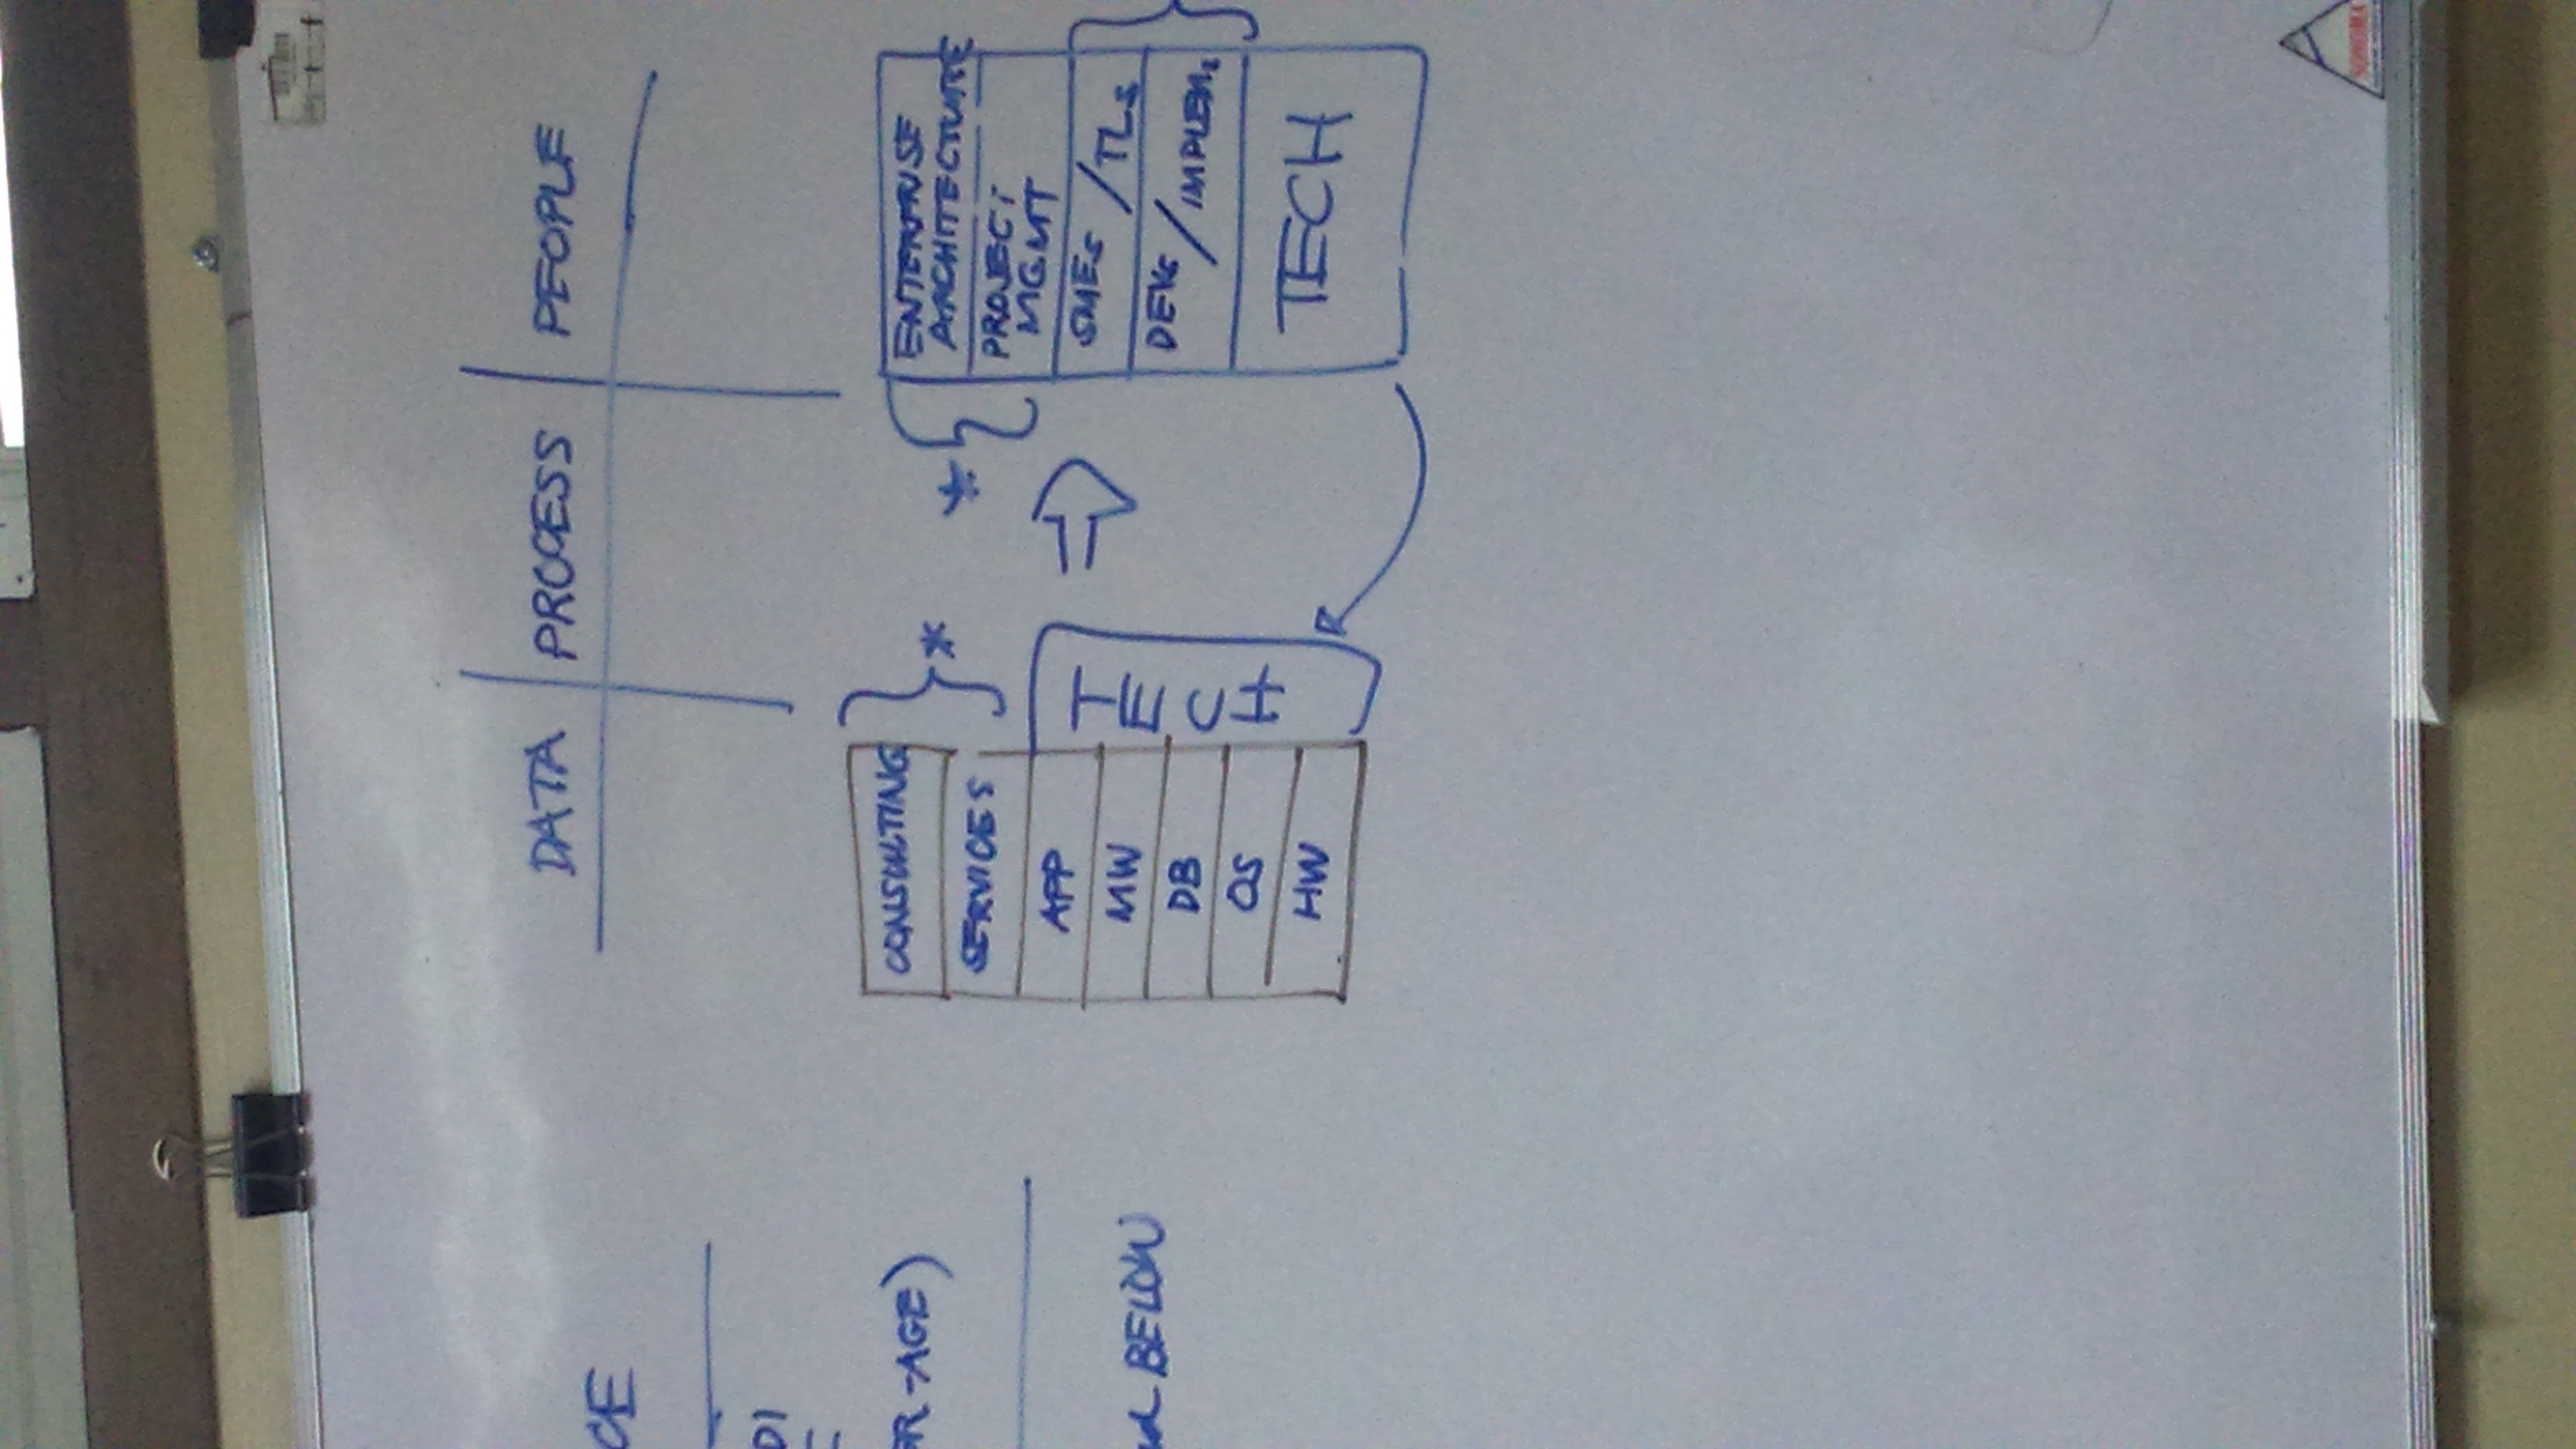 CE
DI
ER-AGE)
BELOW
DATA PROCESS PEOPLE
CONSULTING
SERVICES
APP
MW
DB
OS
HW
*
TECH
*
ENTERPRISE
ARCHITECTURE
PROJECT
MGMT
SMES / TLS
DEVS / IMPLEM.
TECH
SONOMA